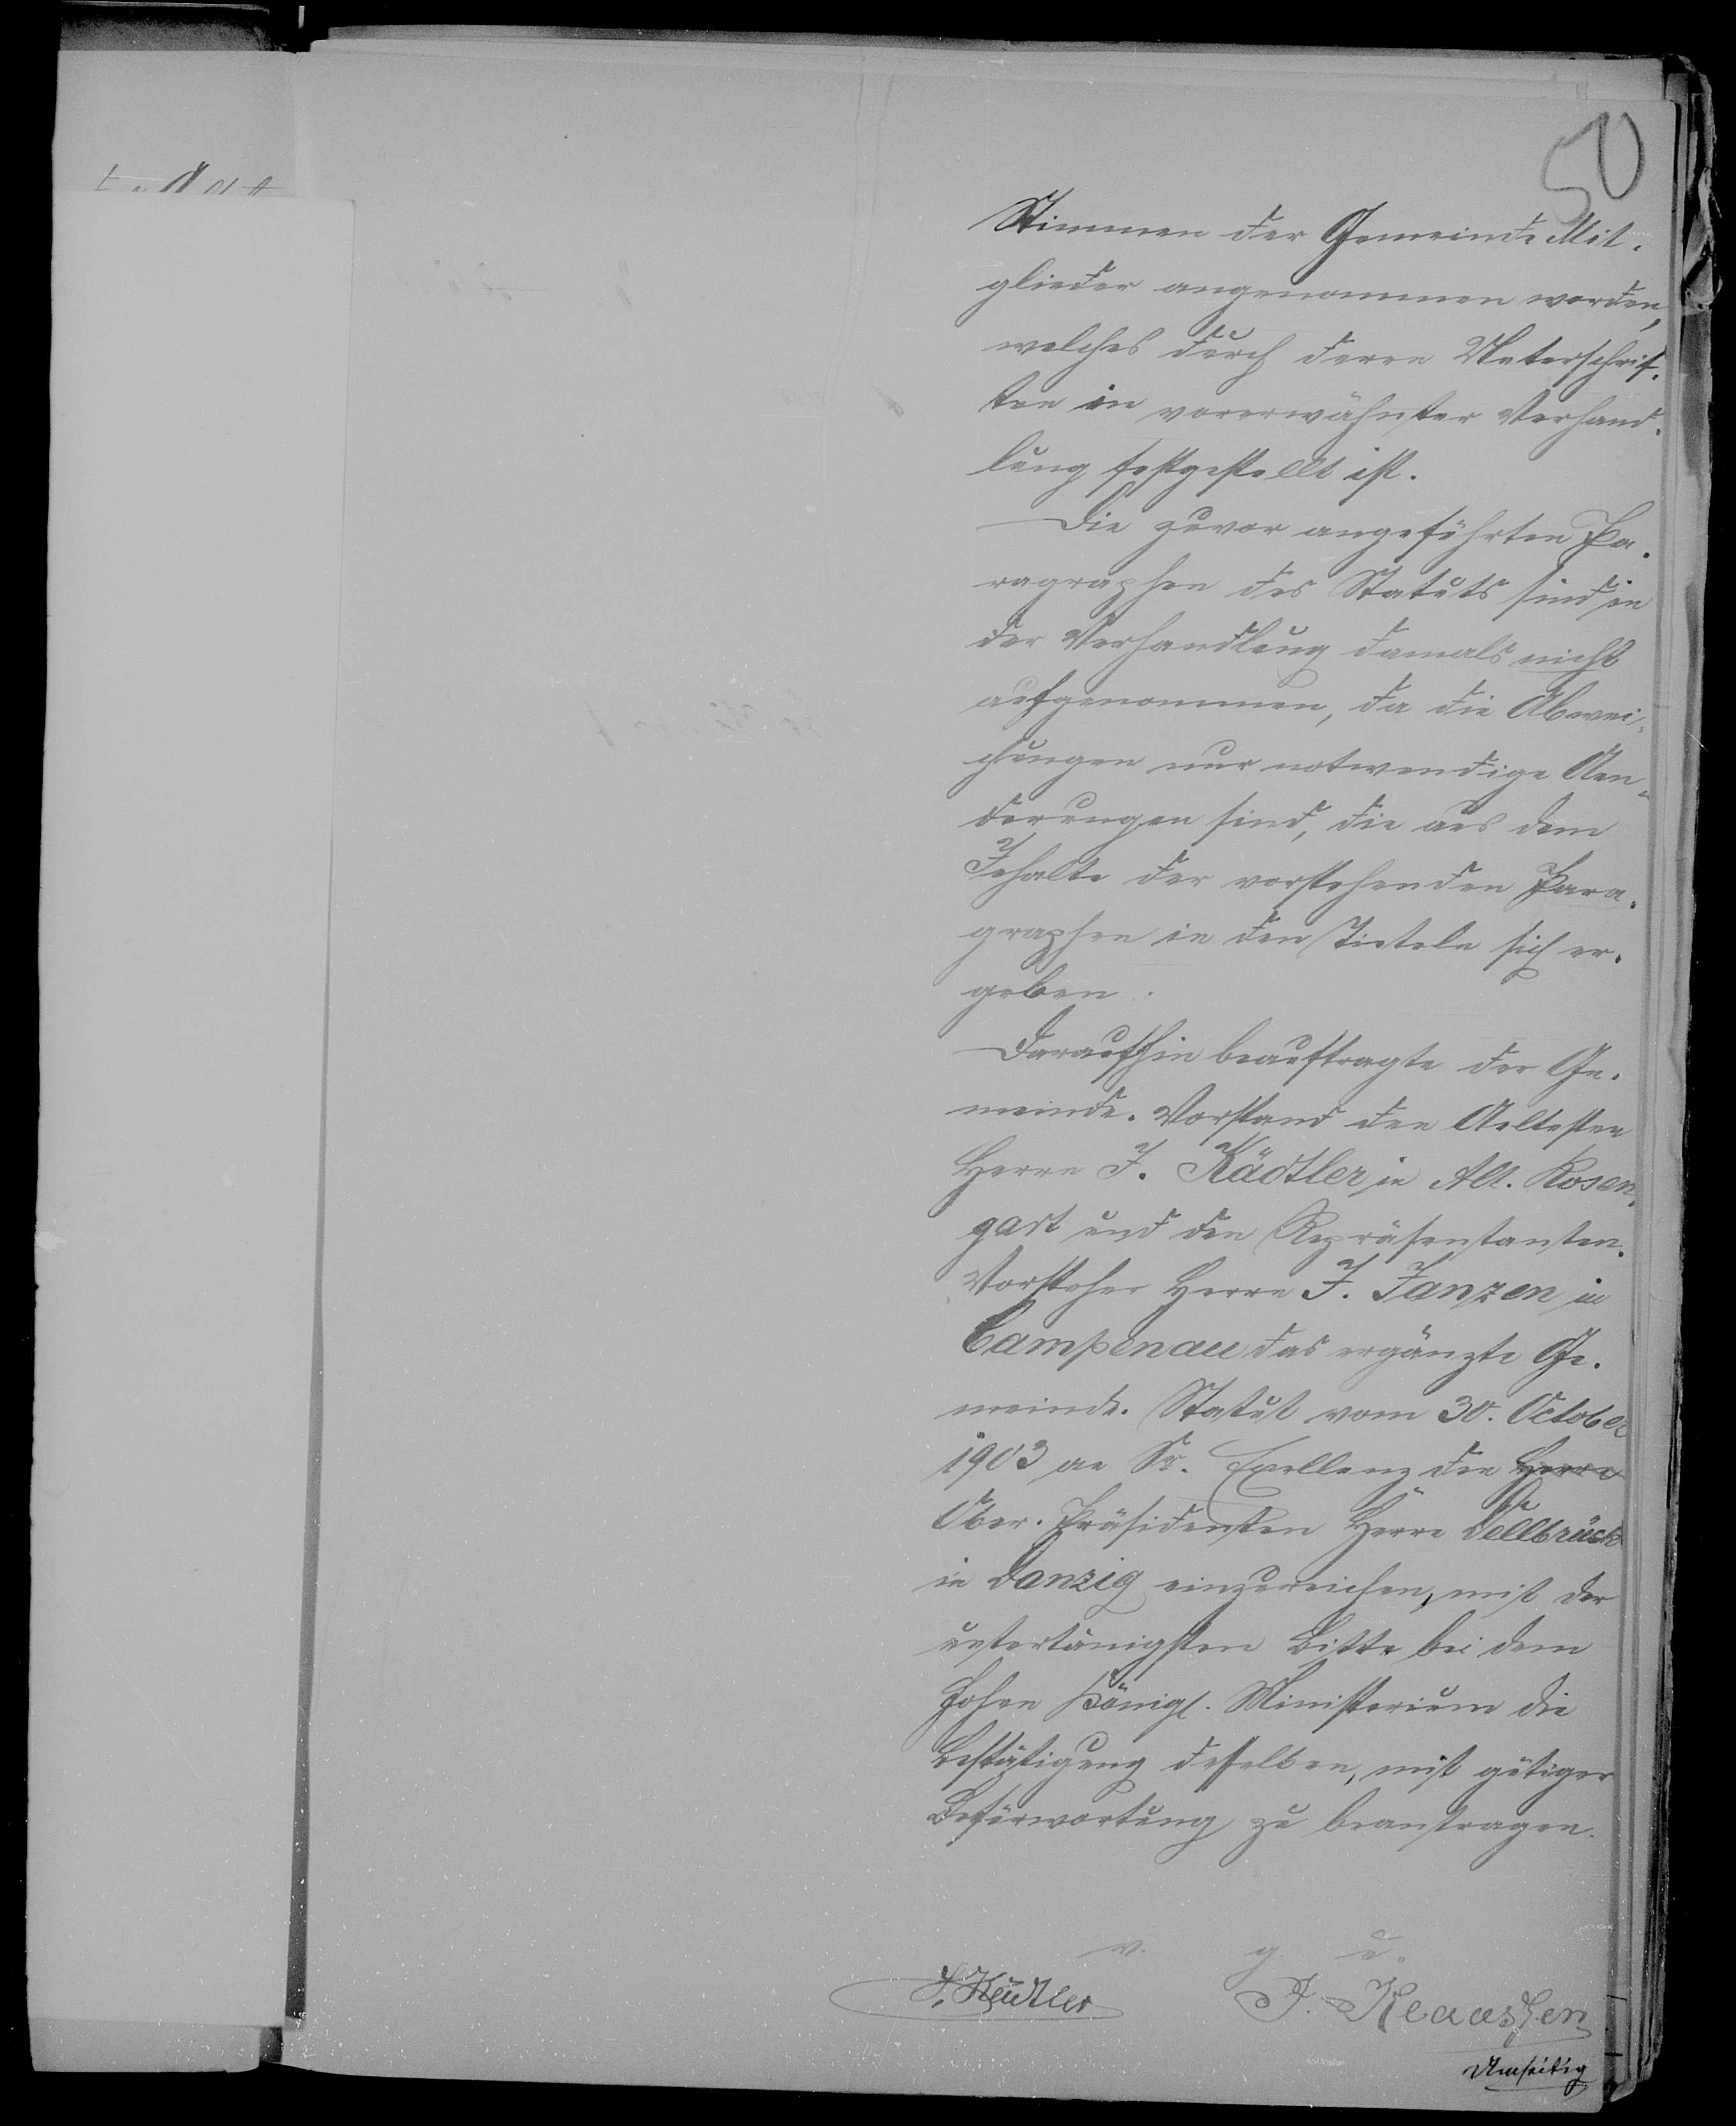 50
Stimmen der Gemeinde Mit-
glieder angenommen worden,
welches durch deren Unterschrif-
ten in vorerwähnter Verhand-
lung festgestellt ist.
Die zuvor angeführten Pa-
ragraphen des Statuts sind in
der Verhandlung damals nicht
aufgenommen, da die Abwei-
chungen nur notwendige Aen-
derungen sind, die aus dem
Inhalte der vorstehenden Para-
graphen in den Titeln sich er-
geben.
Daraufhin beauftragte der Ge-
meinde-Vorstand den Aeltesten
Herrn J. Kädtler in Alt-Rosen-
gart und den Repräsentanten-
Vorsteher Herrn J. Janzen in
Campenau das ergänzte Ge-
meinde-Statut vom 30. October
1903 an Sr. Exellenz den Herrn
Ober-Präsidenten Herrn Dellbrück
in Danzig einzureichen, mit der
untertänigsten Bitte bei dem
hohen Königl. Ministerium die
Bestätigung desselben, mit gütiger
Befürwortung zu beantragen.
v. g. u.
J. Kädtler J. Klaassen
Umseitig